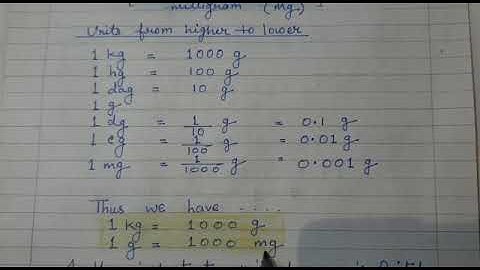 milligram (mg)
Units from higher to lower
1 kg = 1000 g
1 hg = 100 g
1 dag = 10 g
1 g
1 dg = 1/10 g = 0.1 g
1 cg = 1/100 g = 0.01 g
1 mg = 1/1000 g = 0.001 g
Thus we have .....
1 kg = 1000 g
1 g = 1000 mg